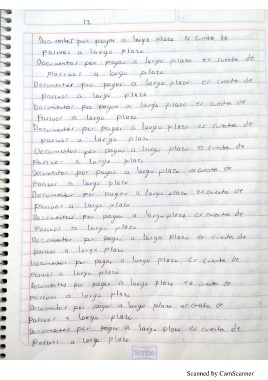 13
Documentos por pagar a largo plazo es cuenta de
pasivos a largo plazo
Documentos por pagar a largo plazo es cuenta de
pasivos a largo plazo
Documentos por pagar a largo plazo es cuenta de
pasivos a largo plazo
Documentos por pagar a largo plazo es cuenta de
Pasivos a largo plazo
Documentos por pagar a largo plazo es cuenta de
pasivos a largo plazo
Documentos por pagar a largo plazo es cuenta de
Pasivos a largo plazo
Documentos por pagar a largo plazo es cuenta de
Pasivos a largo plazo
Documentos por pagar a largo plazo es cuenta de
Pasivos a largo plazo
Documentos por pagar a largo plazo es cuenta de
Pasivos a largo plazo
Documentos por pagar a largo plazo es cuenta de
pasivos a largo plazo
Documentos por pagar a largo plazo es cuenta de
Pasivos a largo plazo
Documentos por pagar a largo plazo es cuenta de
pasivos a largo plazo
Documentos por pagar a largo plazo es cuenta de
Pasivos a largo plazo
Documentos por pagar a largo plazo es cuenta de
Pasivos a largo plazo
Scribe
Scanned by CamScanner